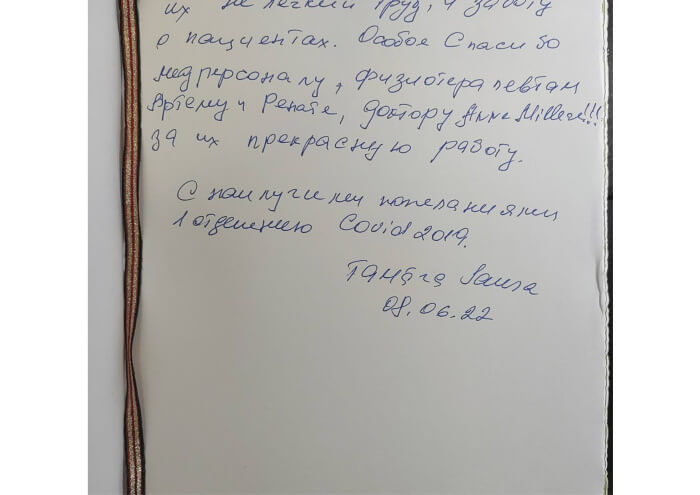 их не легкий труд, и заботу
о пациентах. Особое Спасибо
мед персоналу, физиотерапевтам
Артему и Ренате, доктору Anne Miller!!!
за их прекрасную работу.
С наилучшими пожеланиями
1 отделению Covid 2019.
08.06.22